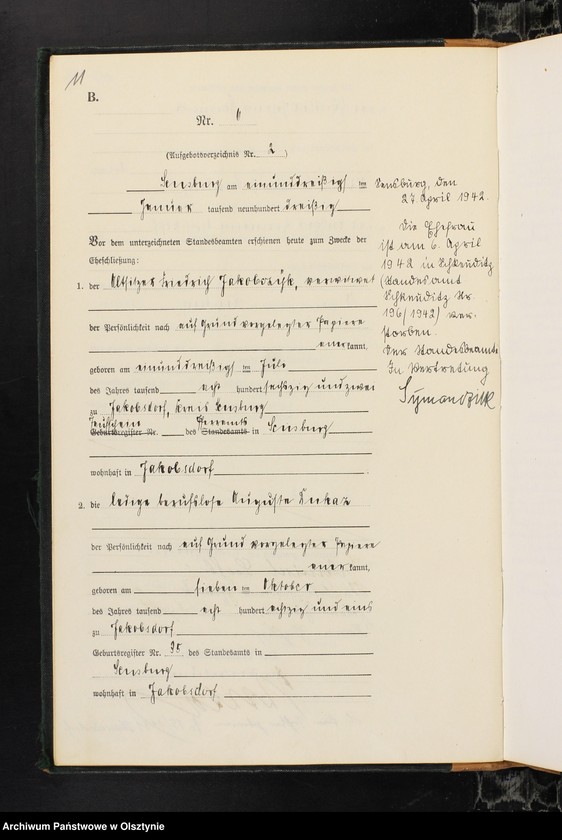 11
B.
Nr. 11
(Aufgebotsverzeichnis Nr. 2)
Sensburg am einunddreißigsten
Januar tausend neunhundert dreißig
Vor dem unterzeichneten Standesbeamten erschienen heute zum Zwecke der
Eheschließung:
1. der Altsitzer Friedrich verwitwet
der Persönlichkeit nach auf Grund vorgelegter Papiere
anerkannt,
geboren am einunddreißigsten Juli
des Jahres tausend acht hundert sechzig und zwei
zu Jakobsdorf, Kreis Sensburg
Taufschein Pfarramts
Geburtsregister Nr. des Standesamts in Sensburg
wohnhaft in Jakobsdorf
2. die ledige berufslose Auguste
der Persönlichkeit nach auf Grund vorgelegter Papiere
anerkannt,
geboren am sieben ten Oktober
des Jahres tausend acht hundert achtzig und eins
zu Jakobsdorf
Geburtsregister Nr. 38 des Standesamts in
Sensburg
wohnhaft in Jakobsdorf
Sensburg, den
27. April 1942.
Die Ehefrau
ist am 6. April
1942 in Schkeuditz
(Standesamt
Schkeuditz Nr
196/1942) ver-
storben.
Der Standesbeamte
In Vertretung
Symanzik
Archiwum Państwowe w Olsztynie